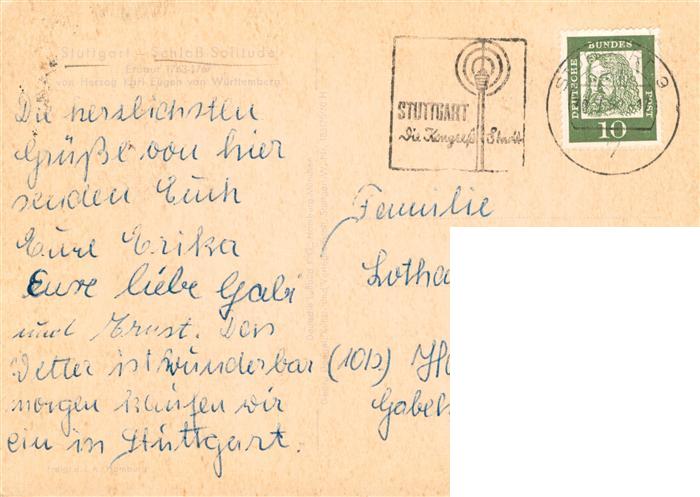 Stuttgart – Schloß Solitude
Erbaut 1763-1767
von Herzog Karl Eugen von Württemberg
Die herzlichsten
Grüße von hier
senden Euch
Eure Erika
Eure liebe Gabi
und Ernst. Das
Wetter ist wunderbar
morgen kaufen wir
ein in Stuttgart.
STUTTGART
Die Kongreß Stadt
DEUTSCHE
BUNDES
POST
10
Familie
Lotha
(10b)
Gabel